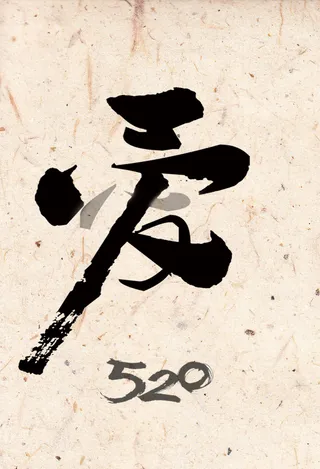 爱
520